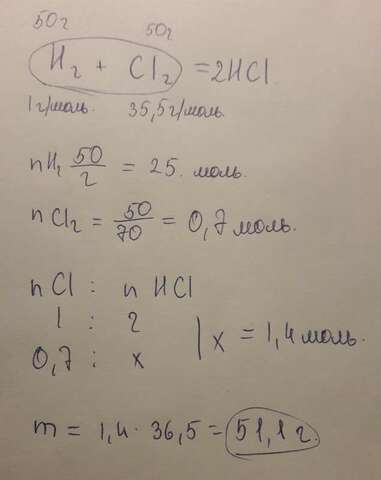 50г 50г
H₂ + Cl₂ = 2HCl
1г/моль. 35,5г/моль.
n H₂ 50/2 = 25. моль.
n Cl₂ = 50/70 = 0,7 моль.
n Cl : n HCl
1 : 2
0,7 : x | x = 1,4 моль.
m = 1,4 · 36,5 = 51,1 г.